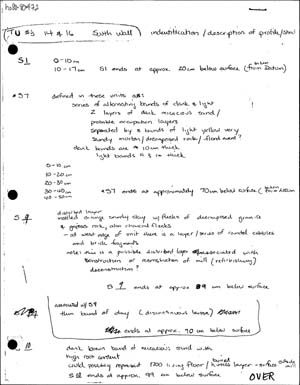 TU #s 14 & 16 South wall indentification/description of profile/strat
S1 0-10cm
10-17cm S1 ends at approx. 20cm below surface (from Datum)
below
* S7 defined in these units as:
series of alternating bands of dark & light
2 layers of dark micaceous sand/
possible occupation layers
separated by 2 bands of light yellow very
sandy mortar/decomposed rock/flood event?
dark bands are 10cm thick
light bands 5 in thick
0-10cm
10-20cm
20-30cm
30-40cm
40-50cm
* S7 ends at approximately 70cm below surface (from Datum
below
S 9 disturbed layer
mottled orange sandy clay w/ flecks of decomposed granite
& gneiss rock, also charcoal flecks
- at west edge of unit there is a layer/series of rounded cobbles
and brick fragments
note: this is a possible disturbed layer associated with
construction or reconstruction of mill (refurbishing)
deconstruction?
S 9 ends at approx 89 cm below surface
around of S9
thin band of clay (discontinuous layer)
ends at approx. 90 cm below surface
10 dark brown band of micaceous sand with
high root content
could possibly represent 1700 living floor/buried humus layer - surface
S 10 ends at approx. 99 cm below surface
OVER